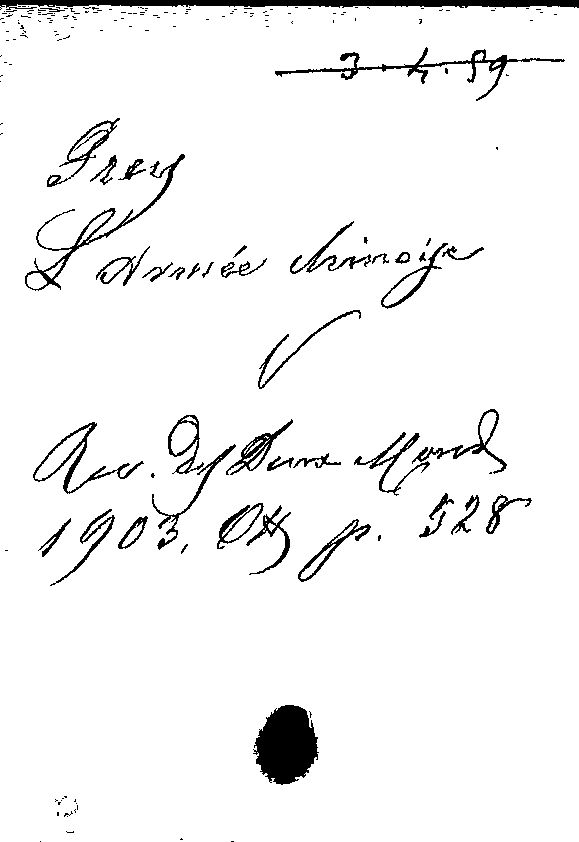 3.4.89
Frey
L'Armée chinoise
Rev. des Deux Mondes
1903, Oct, p. 528